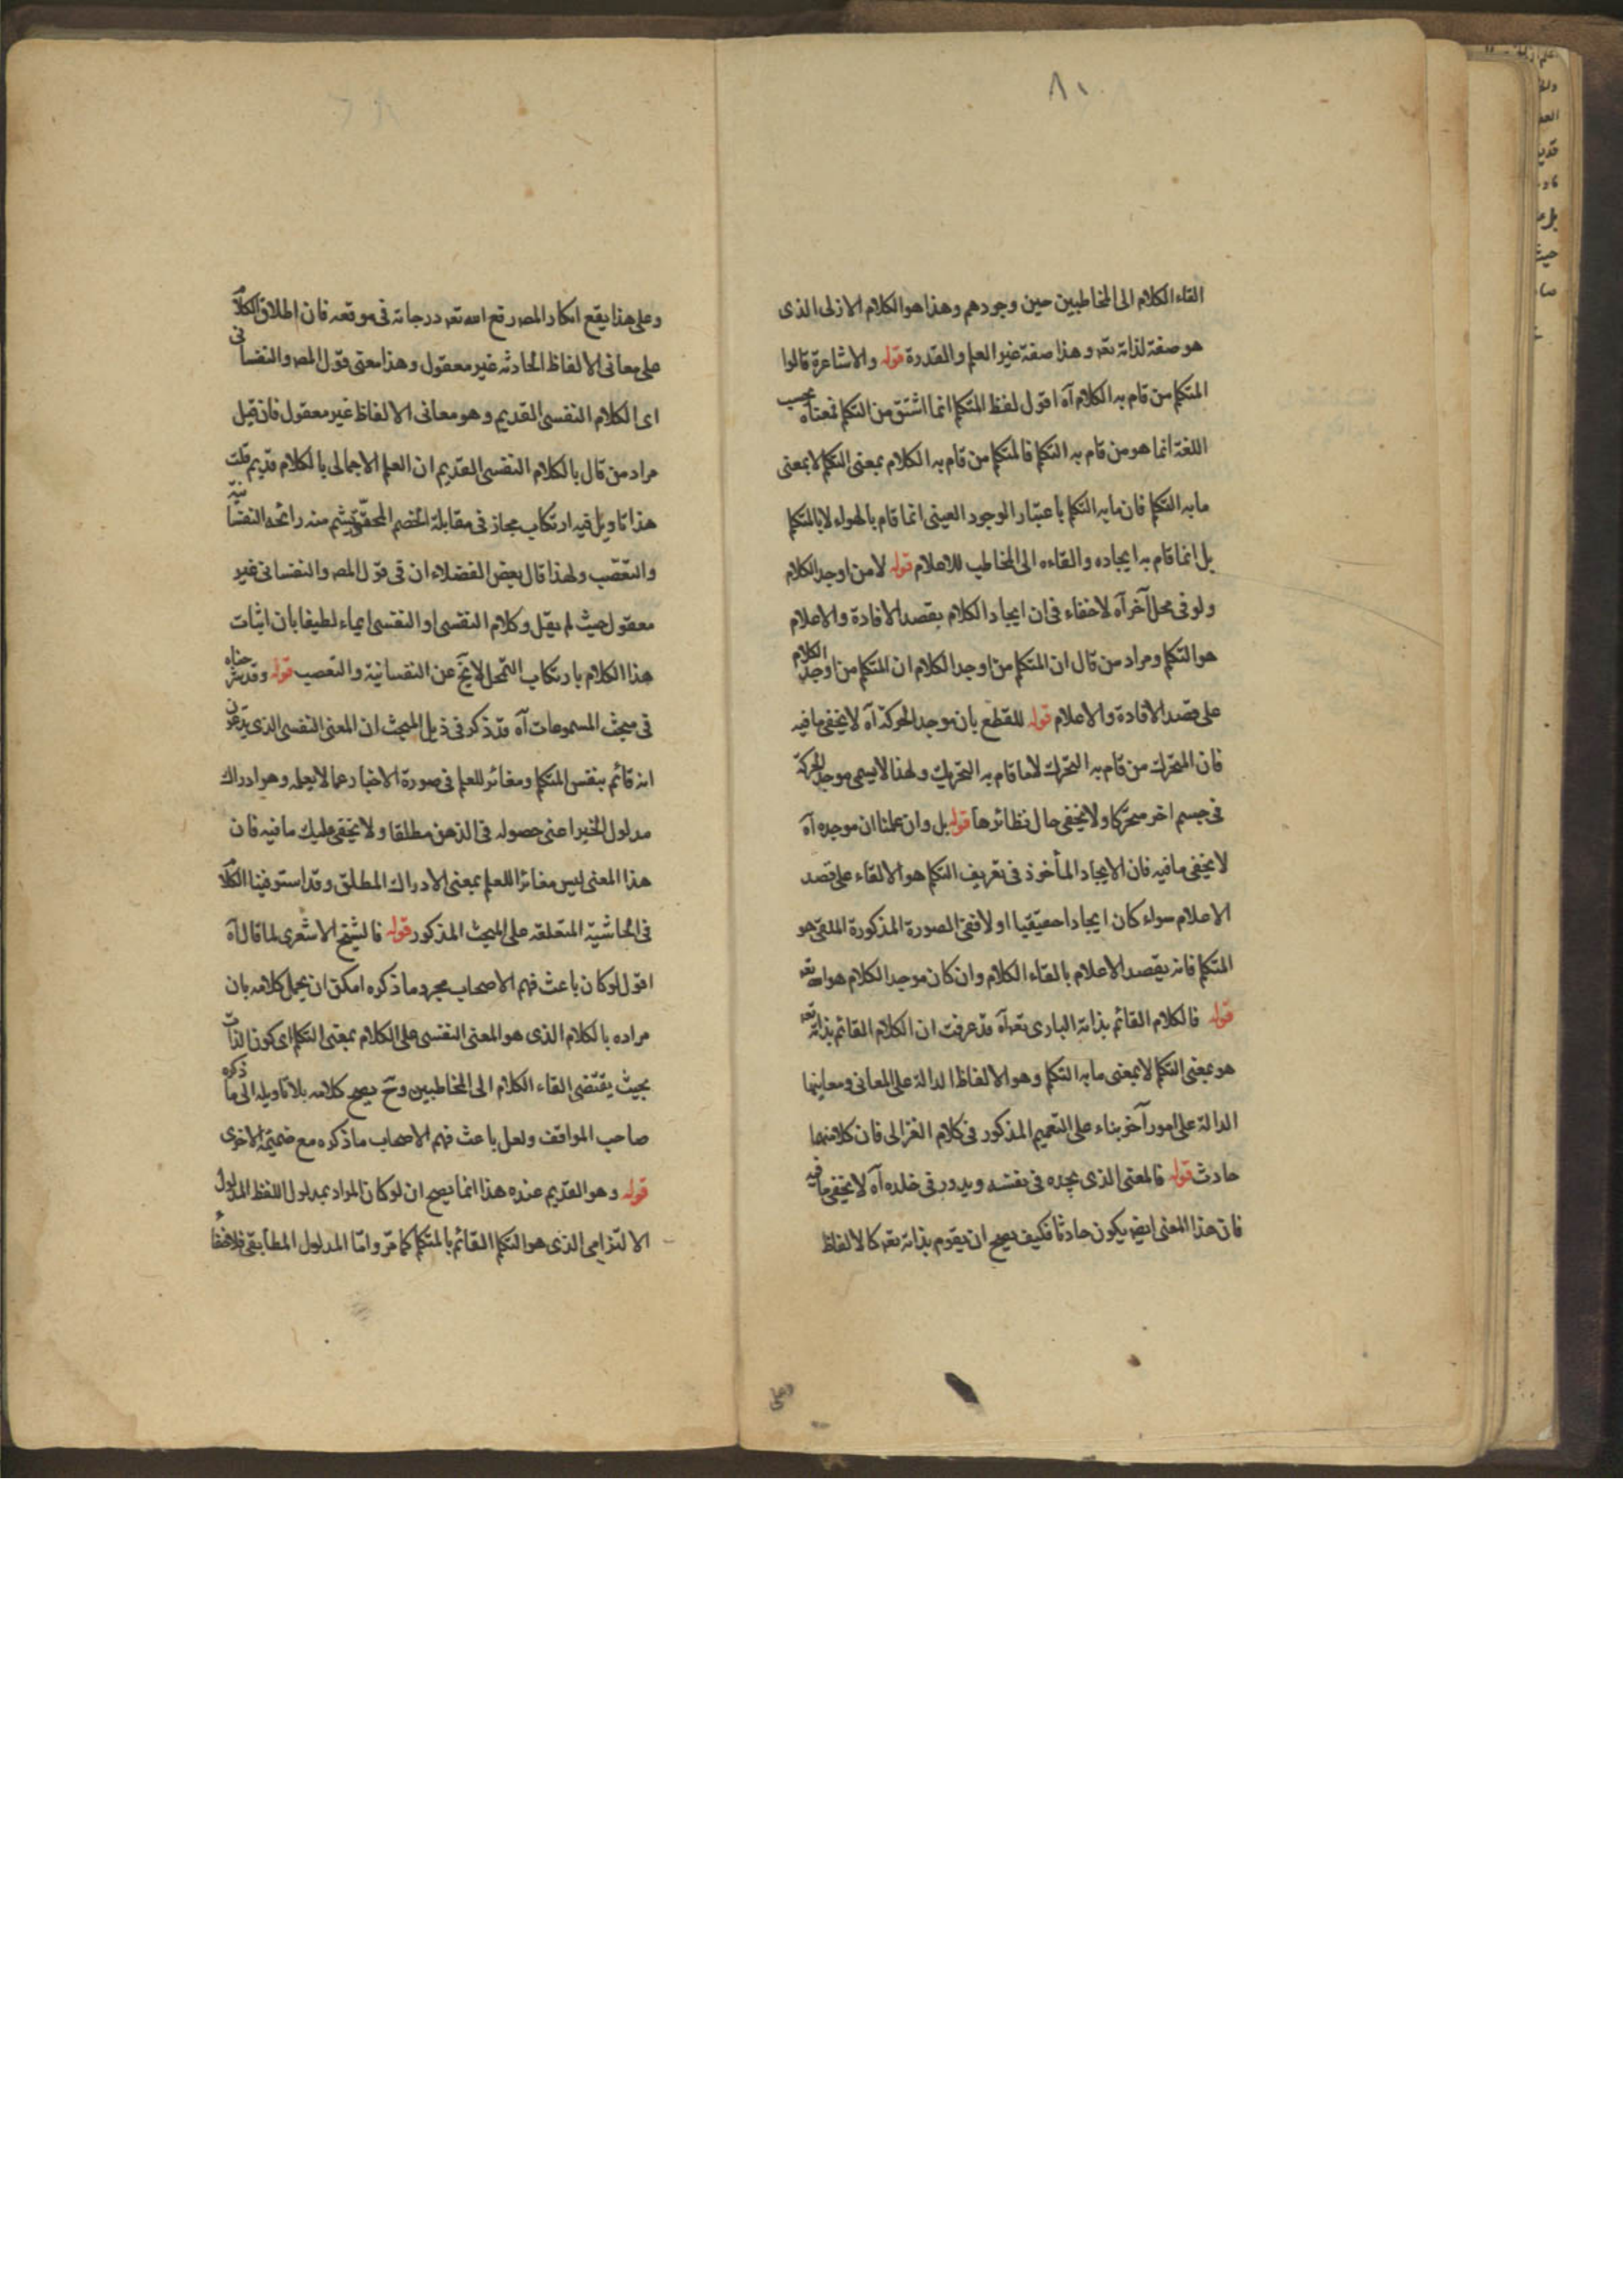 ٨١
القاء الكلام الى المخاطبين حين وجودهم وهذا هو الكلام الازلى الذى
هو صفة لذاته تعه وهذا صفة غير العلم والقدرة قوله والاشاعرة قالوا
المتكلم من قام به الكلام آه اقول لفظ المتكلم انما اشتق من التكلم فمعناه بحسب
اللغة انما هو من قام به التكلم فالمتكلم من قام به الكلام بمعنى التكلم لا بمعنى
ما به التكلم فان ما به التكلم باعتبار الوجود العينى انما قام بالهواء لا بالمتكلم
بل انما قام به ايجاده والقاءه الى المخاطب للاعلام قوله لا من اوجد الكلام
ولو فى محل آخر آه لا خفاء فى ان ايجاد الكلام بقصد الافادة والاعلام
هو التكلم ومراد من قال ان المتكلم من اوجد الكلام ان المتكلم من اوجد الكلام
على قصد الافادة والاعلام قوله للقطع بان موجد الحركة آه لا يخفى ما فيه
فان المتحرك من قام به التحرك لا ما قام به التحريك ولهذا لا يسمى موجد الحركة
فى جسم اخر متحركا ولا يخفى حال نظائرها قوله بل وان علمنا ان موجده آه
لا يخفى ما فيه فان الايجاد المأخوذ فى تعريف التكلم هو الالقاء على قصد
الاعلام سواء كان ايجادا حقيقيا او لا ففى الصورة المذكورة الملقى هو
المتكلم فانه يقصد الاعلام بالقاء الكلام وان كان موجد الكلام هو الله تعه
قوله فالكلام القائم بذاته البارى تعه آه قد عرفت ان الكلام القائم بذاته تعه
هو بمعنى التكلم لا بمعنى ما به التكلم وهو الالفاظ الدالة على المعانى ومعانيها
الدالة على امور آخر بناء على التعميم المذكور فى كلام الغزالى فان كلا منهما
حادث قوله فالمعنى الذى يجده فى نفسه ويدور فى خلده آه لا يخفى ما فيه
فان هذا المعنى ايضه يكون حادثا فكيف يصح ان يقوم بذاته تعه كالالفاظ
وعلى
وعلى هذا يقع انكار المصه رفع الله تعه درجاته فى موقعه فان اطلاق الكلام
على معانى الالفاظ الحادثه غير معقول وهذا معنى قول المصه والنفسانى
اى الكلام النفسى القديم وهو معانى الالفاظ غير معقول فان قيل
مراد من قال بالكلام النفسى القديم ان العلم الاجمالى بالكلام قديم قلت
هذا تاويل فيه ارتكاب مجاز فى مقابلة الخصم المحقق يشم منه رائحه النفسانية
والتعصب ولهذا قال بعض الفضلاء ان فى قول المصه والنفسانى غير
معقول حيث لم يقل وكلام النفسى او النفسى ايماء لطيفا بان اثبات
هذا الكلام بارتكاب التمحل لا يخ عن النفسانية والتعصب قوله وقد شرحناه
فى مبحث المسموعات آه قد ذكر فى ذيل المبحث ان المعنى النفسى الذى يدعون
انه قائم بنفس المتكلم ومغائر للعلم فى صورة الاخبار عما لا يعلمه وهو ادراك
مدلول الخبر اعنى حصوله فى الذهن مطلقا ولا يخفى عليك ما فيه فان
هذا المعنى ليس مغائرا للعلم بمعنى الادراك المطلق وقد استوفينا الكلام
فى الحاشية المتعلقه على المبحث المذكور قوله فالشيخ الاشعرى لما قال آه
اقول لو كان باعث فهم الاصحاب مجرد ما ذكره امكن ان يحمل كلامه بان
مراده بالكلام الذى هو المعنى النفسى على الكلام بمعنى التكلم اى كون الذات
بحيث يقتضى القاء الكلام الى المخاطبين وح يصح كلامه بلا تاويله الى ما ذكره
صاحب المواقف ولعل باعث فهم الاصحاب ما ذكره مع ضميمة الاخرى
قوله وهو القديم عنده هذا انما يصح ان لو كان المراد بمدلول اللفظ المدلول
الالتزامى الذى هو التكلم القائم بالمتكلم كما مر واما المدلول المطابقى فلا خفاء